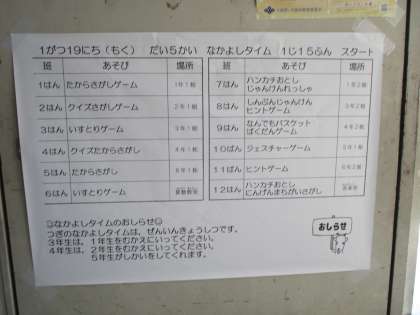 1がつ19にち(もく) だい5かい なかよしタイム 1じ15ふん スタート
班 あそび 場所
1はん たからさがしゲーム 1年1組
2はん クイズさがしゲーム 2年1組
3はん いすとりゲーム 3年1組
4はん クイズたからさがし 4年1組
5はん たからさがし
6はん いすとりゲーム
班 あそび 場所
7はん ハンカチおとし
じゃんけんれっしゃ 1年2組
8はん しんぶんじゃんけん
ヒントゲーム
9はん なんでもバスケット
ばくだんゲーム 4年2組
10はん ジェスチャーゲーム 5年1組
11はん ヒントゲーム
12はん ハンカチおとし
にんげんまちがいさがし
◎なかよしタイムのおしらせ◎
つぎのなかよしタイムは、ぜんいんきょうしつです。
3年生は、1年生をむかえにいってください。
4年生は、2年生をむかえにいってください。
5年生がしかいをしてくれます。
おしらせ